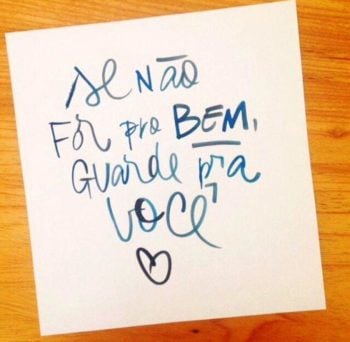 Se não
For pro BEM,
Guarde pra
você